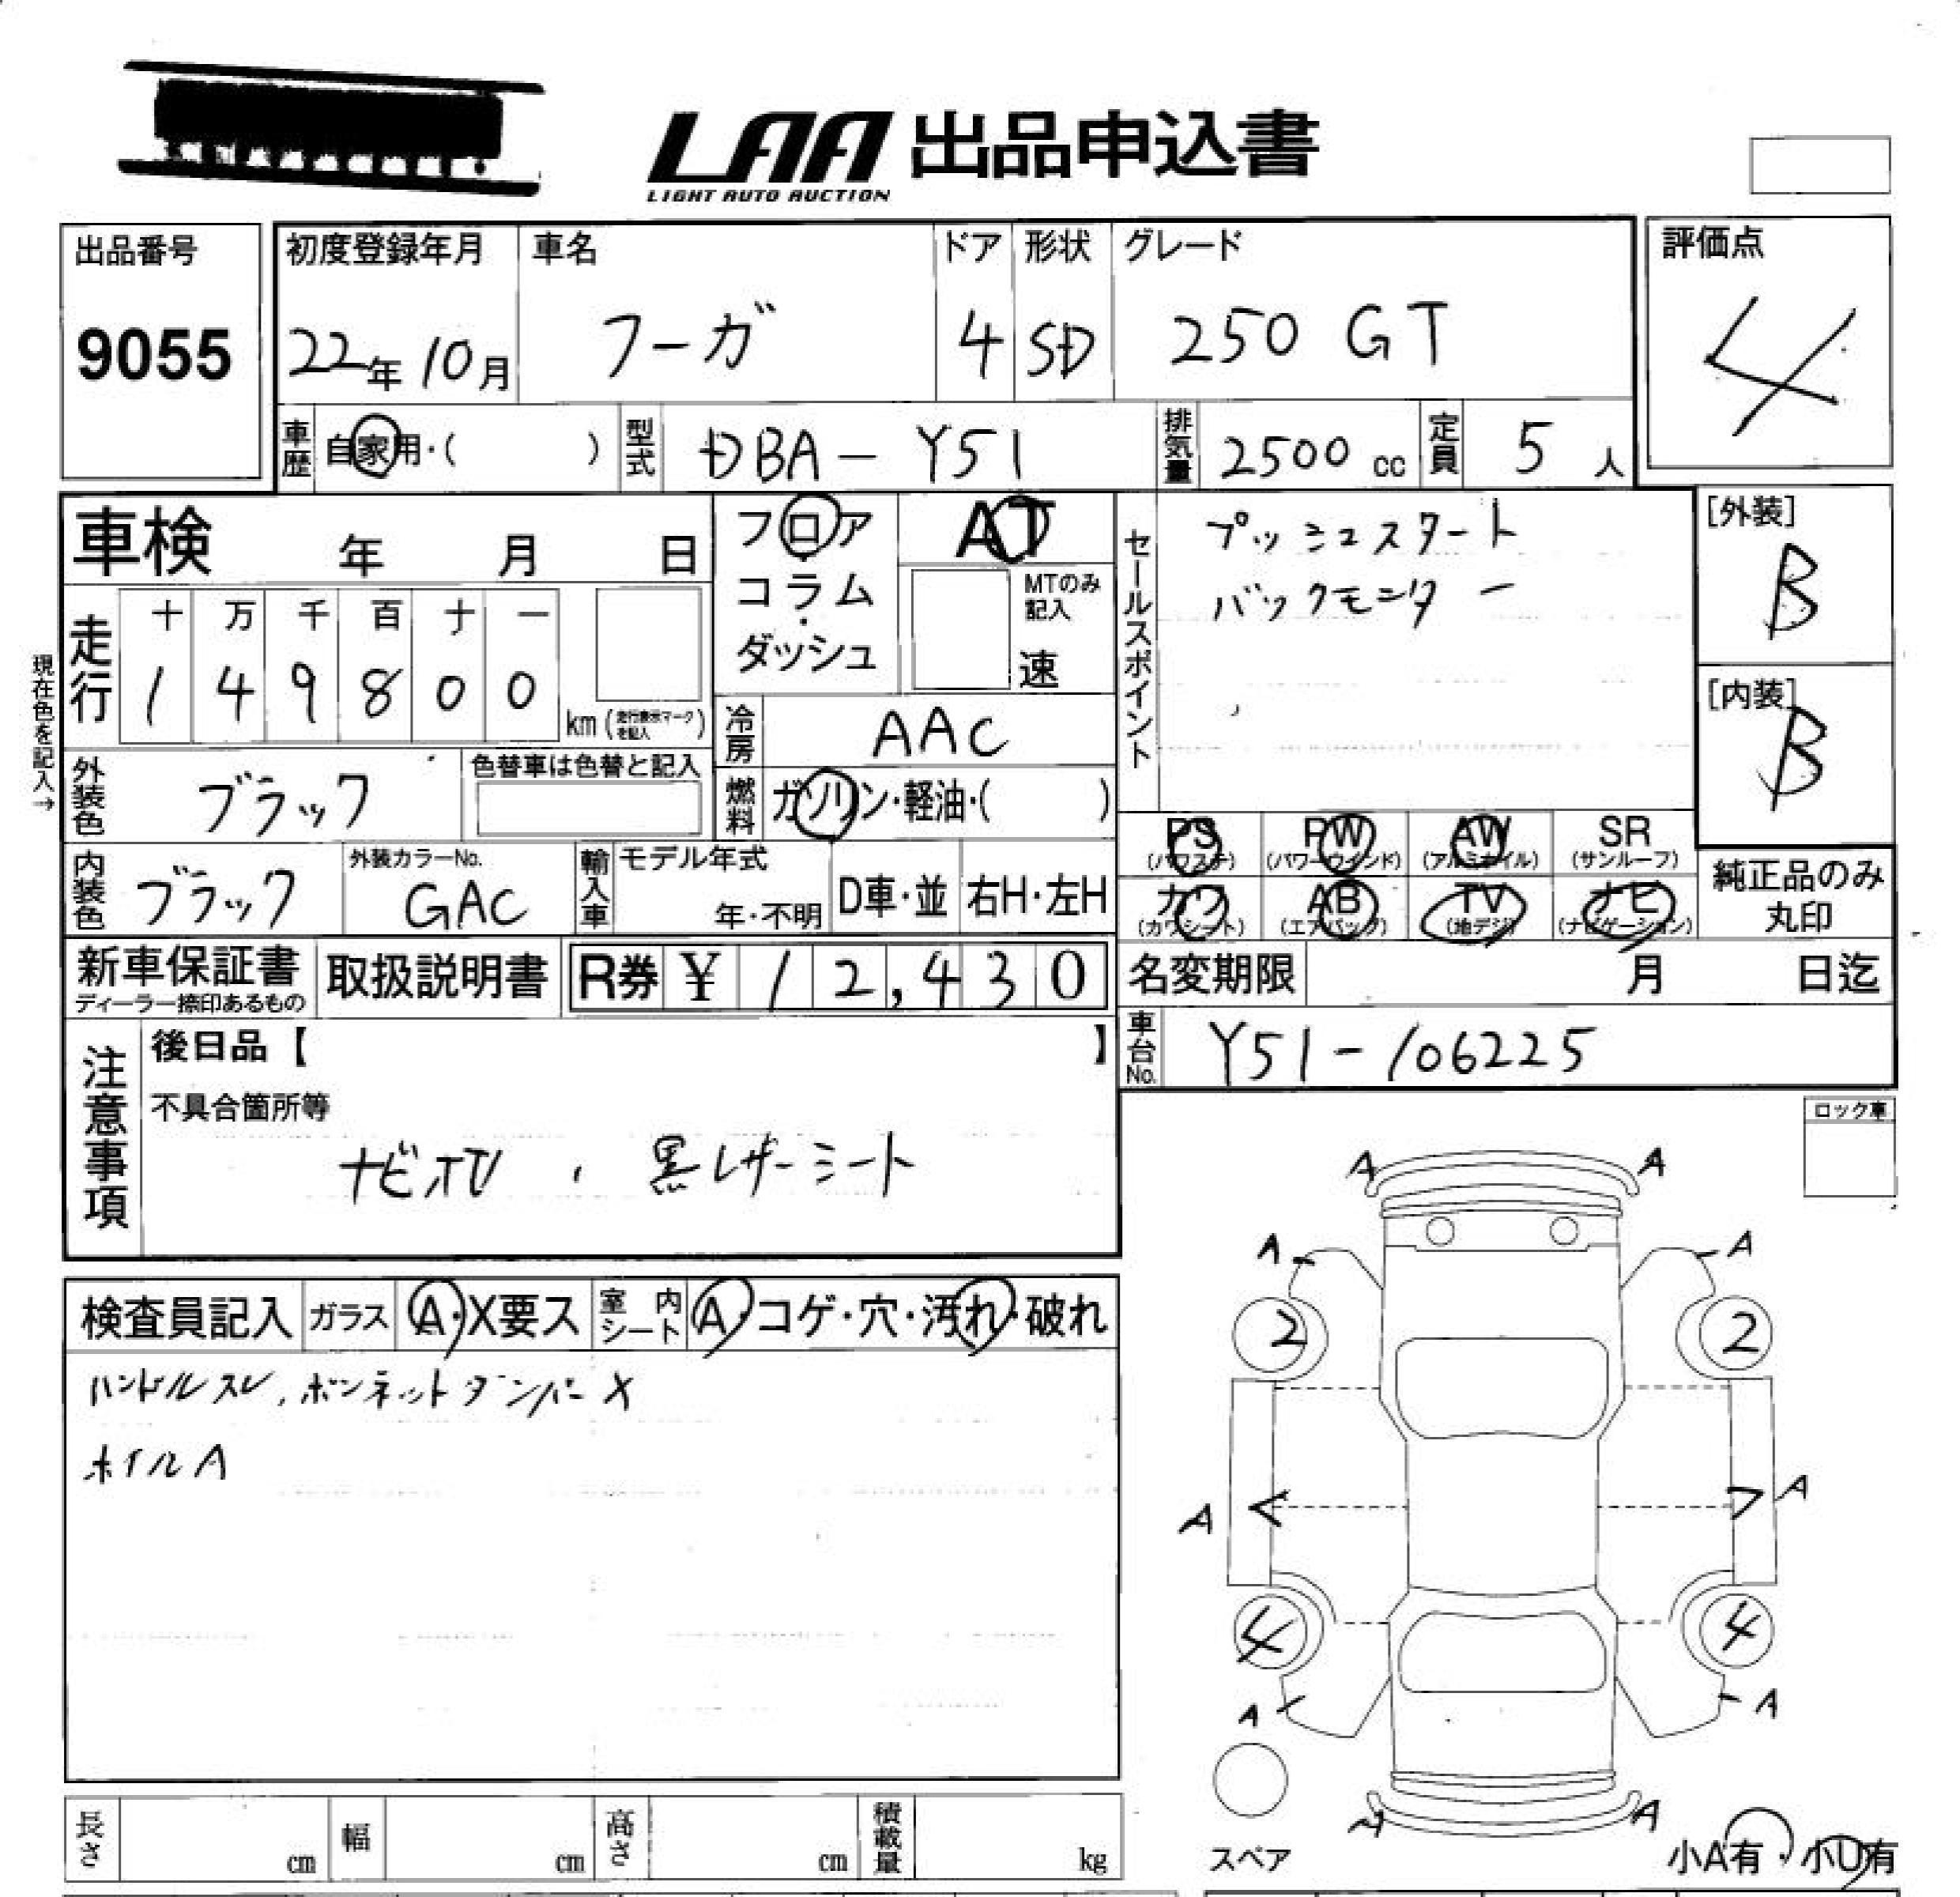 LAA 出品申込書
LIGHT AUTO AUCTION
出品番号
9055
初度登録年月
22年10月
車名
フーガ
ドア
4
形状
SD
グレード
250 GT
評価点
4
車歴 自家用・( )
型式 DBA-Y51
排気量 2500 cc
定員 5 人
車検 年 月 日
現在色を記入→
走行
十 万 千 百 十 一
1 4 9 8 0 0
km (走行表示マークを記入)
フロア
コラム
・
ダッシュ
AT
MTのみ記入
速
冷房 AAC
燃料 ガソリン・軽油・( )
セールスポイント
プッシュスタート
バックモニター
[外装]
B
[内装]
B
外装色 ブラック
色替車は色替と記入
内装色 ブラック
外装カラーNo.
GAC
輸入車 モデル年式
年・不明
D車・並
右H・左H
PS (パワステ)
PW (パワーウインド)
AW (アルミホイル)
SR (サンルーフ)
カワ (カワシート)
AB (エアバック)
TV (地デジ)
ナビ (ナビゲーション)
純正品のみ
丸印
新車保証書
ディーラー捺印あるもの
取扱説明書
R券 ¥ 12,430
名変期限 月 日迄
車台No. Y51-106225
注意事項
後日品【 】
不具合箇所等
黒レザーシート
ロック車
検査員記入 ガラス A・X要ス 室内シート A・コゲ・穴・汚れ・破れ
ハンドルスレ、ボンネットダンパーX
ホイルA
A A
A A
2 2
A A
4 4
A A
A A
スペア
小A有・小U有
長さ cm
幅 cm
高さ cm
積載量 kg